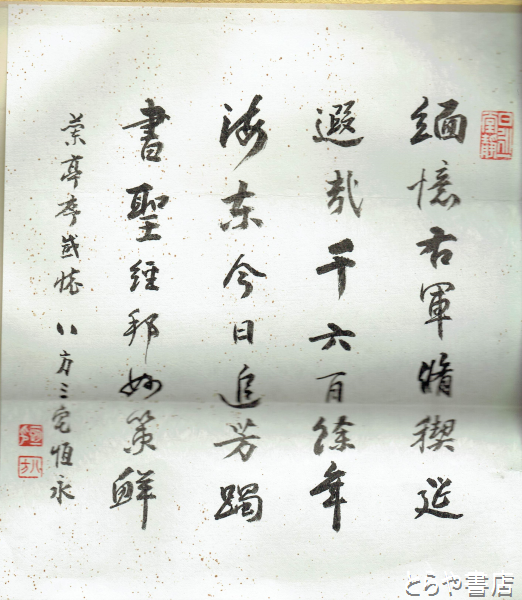 緬憶右軍脩禊筵
遐哉千六百餘年
海東今日追芳躅
書聖經邦妙策鮮
蘭亭李感懐 八方三宅恒永
とらや書店